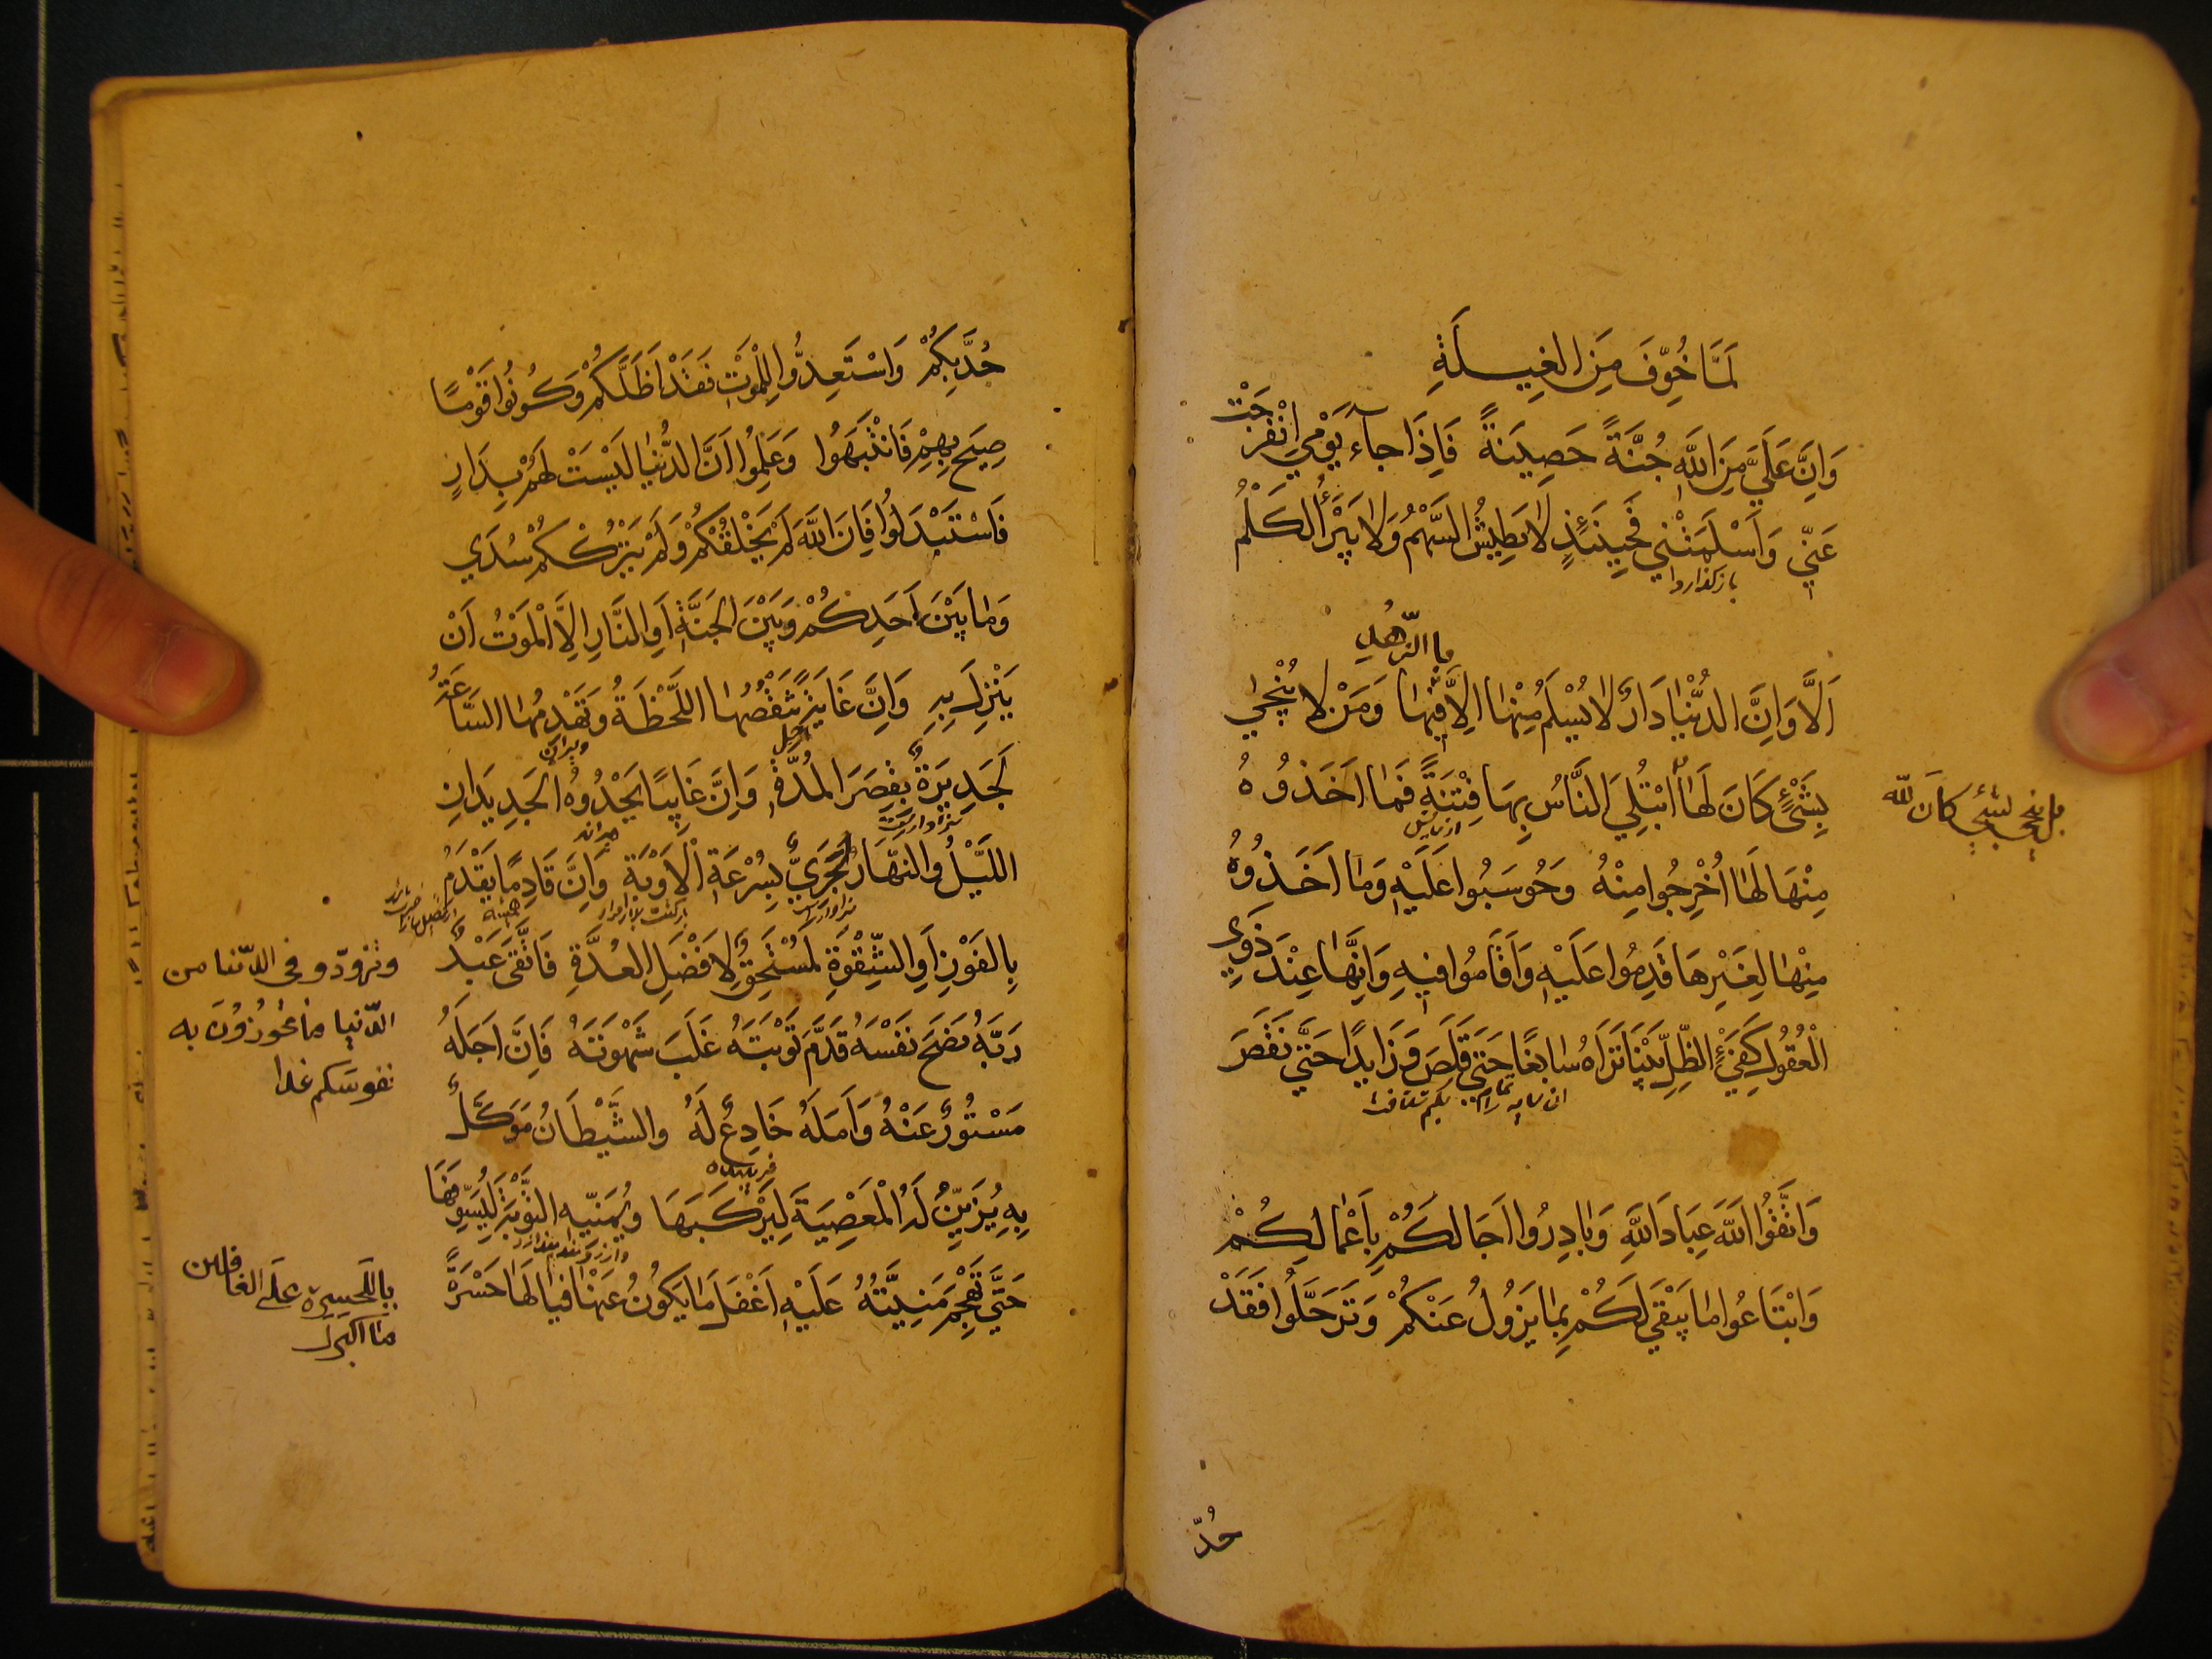 لَمَّا خُوِّفَ مِنَ الغِيلَةِ
وَاِنَّ عَلَيَّ مِنَ اللّٰهِ جُنَّةً حَصِينَةً فَاِذَا جاءَ يَوْمِي انْفَرَجَتْ
عَنِّي وَاَسْلَمَتْنِي فَحِينَئِذٍ لا يَطِيشُ السَّهْمُ وَلا يَبْرَأُ الكَلْمُ
بازكذاردا
ما الزهد
اَلَا وَاِنَّ الدُّنْيا دَارٌ لا يُسْلَمُ مِنْها اِلَّا فِيْها وَمَنْ لا يُنْجٰي
بِشَيْءٍ كَانَ لَها ابْتُلِيَ النَّاسُ بِهَا فِتْنَةً فَما اَخَذُوهُ
ازمايش
مِنْهَا لَهَا اُخْرِجُوا مِنْهُ وَحُوسِبُوا عَلَيْهِ وَمَا اَخَذُوهُ
مِنْها لِغَيْرِهَا قَدِمُوا عَلَيْهِ وَاَقَامُوا فِيهِ وَاِنَّهَا عِنْدَ ذَوِي
الْعُقُولِ كَفَيْءِ الظِّلِّ بَيْنَا تَرَاهُ سَابِغًا حَتَّي قَلَصَ وَزَايِدًا حَتَّي نَقَصَ
وَاتَّقُوا اللّٰهَ عِبَادَ اللّٰهِ وَبَادِرُوا اٰجَالَكُمْ بِاَعْمَالِكُمْ
وَابْتَاعُوا مَا يَبْقَي لَكُمْ بِمَا يَزُولُ عَنْكُمْ وَتَرَحَّلُوا فَقَدْ
حُدّ
كَانَ لله
جُدَّ بِكُمْ وَاسْتَعِدُّوا لِلْمَوْتِ فَقَدْ اَظَلَّكُمْ وَكُونُوا قَوْمًا
صِيحَ بِهِمْ فَانْتَبَهُوا وَعَلِمُوا اَنَّ الدُّنْيا لَيْسَتْ لَهُمْ بِدَارٍ
فَاسْتَبْدَلُوا فَاِنَّ اللّٰهَ لَمْ يَخْلُقْكُمْ وَلَمْ يَتْرُكْكُمْ سُدَي
وَمَا بَيْنَ اَحَدِكُمْ وَبَيْنَ الجَنَّةِ اَوِ النَّارِ اِلَّا الْمَوْتُ اَنْ
يَنْزِلَ بِهِ وَاِنَّ غَايَةً تَنْقُصُهَا اللَّحْظَةُ وَتَهْدِمُهَا السَّاعَةُ
لَجَدِيرَةٌ بِقِصَرِ الْمُدَّةِ وَاِنَّ غَايِبًا يَحْدُوهُ الجَدِيدَانِ
اللَّيْلُ وَالنَّهَارُ لَحَرِيٌّ بِسُرْعَةِ الْاَوْبَةِ وَاِنَّ قَادِمًا يَقْدَمُ
بِالفَوْزِ اَوِ الشِّقْوَةِ لَمُسْتَحِقٌّ لِاَفْضَلِ العُدَّةِ فَاتَّقَى عَبْدٌ
وتزوّدوا فى الدّنيا من
الدّنيا ما تحرزُونَ به
نفوسَكم غدا
رَبَّهُ نَصَحَ نَفْسَهُ قَدَّمَ تَوْبَتَهُ غَلَبَ شَهْوَتَهُ فَاِنَّ اَجَلَهُ
مَسْتُورٌ عَنْهُ وَاَمَلَهُ خَادِعٌ لَهُ وَالشَّيْطَانُ مُوَكَّلٌ
فريبنده
بِهِ يُزَيِّنُ لَهُ الْمَعْصِيَةَ لِيَرْكَبَهَا وَيُمَنِّيهِ التَّوْبَةَ لِيُسَوِّفَهَا
حَتَّي تَهْجُمَ مَنِيَّتُهُ عَلَيْهِ اَغْفَلَ مَا يَكُونُ عَنْهَا فَيا لَهَا حَسْرَةً
علي الغافلين
ما اكبر